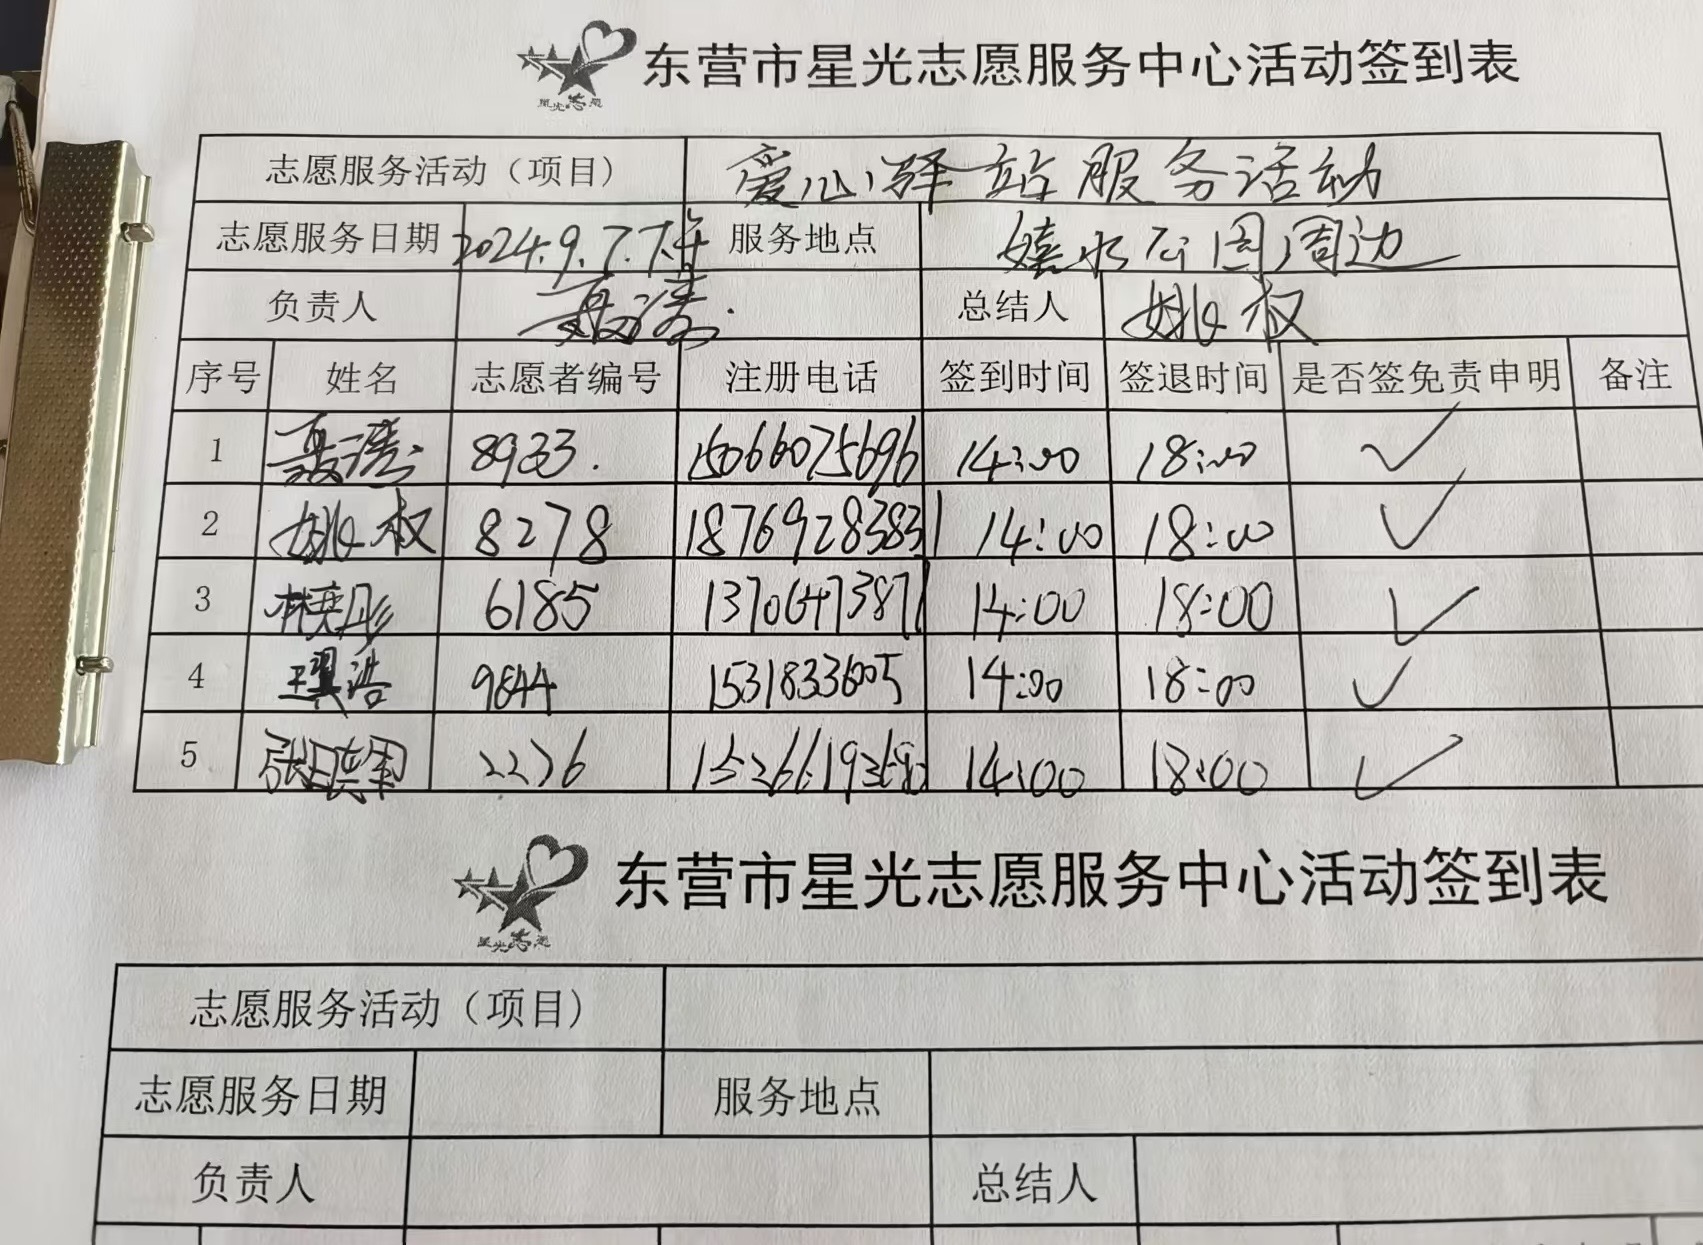 东营市星光志愿服务中心活动签到表
星光志愿
志愿服务活动（项目） 爱心驿站服务活动
志愿服务日期 2024.9.7.下午 服务地点 嬉水公园周边
负责人 总结人 姚权
序号 姓名 志愿者编号 注册电话 签到时间 签退时间 是否签免责申明 备注
1 8933. 15066075696 14:00 18:00 ✓
2 姚权 8278 18769283831 14:00 18:00 ✓
3 6185 13706473871 14:00 18:00 ✓
4 9844 15318336005 14:00 18:00 ✓
5 2276 14:00 18:00 ✓
东营市星光志愿服务中心活动签到表
星光志愿
志愿服务活动（项目）
志愿服务日期 服务地点
负责人 总结人